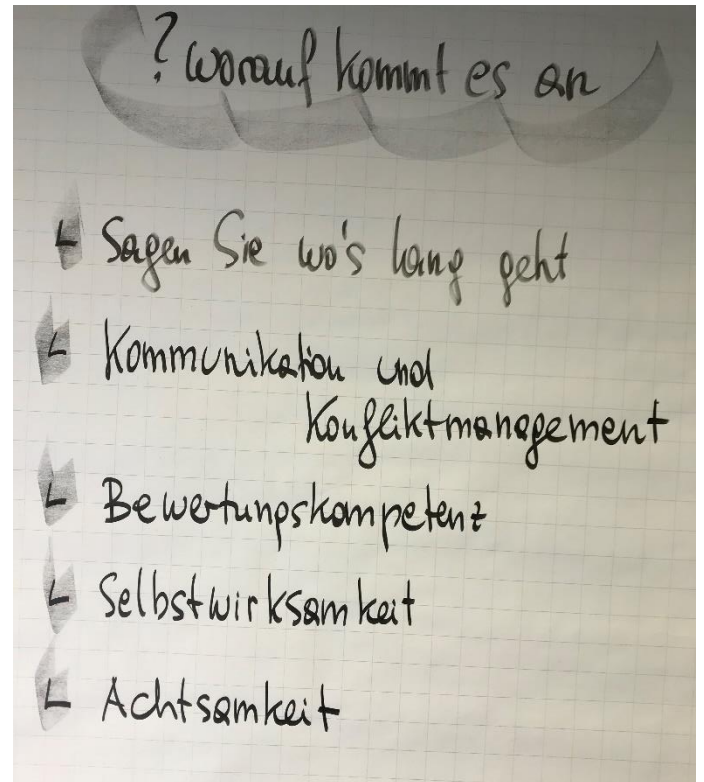 ? worauf kommt es an
Sagen Sie wo's lang geht
Kommunikation und
Konfliktmanagement
Bewertungskompetenz
Selbstwirksamkeit
Achtsamkeit